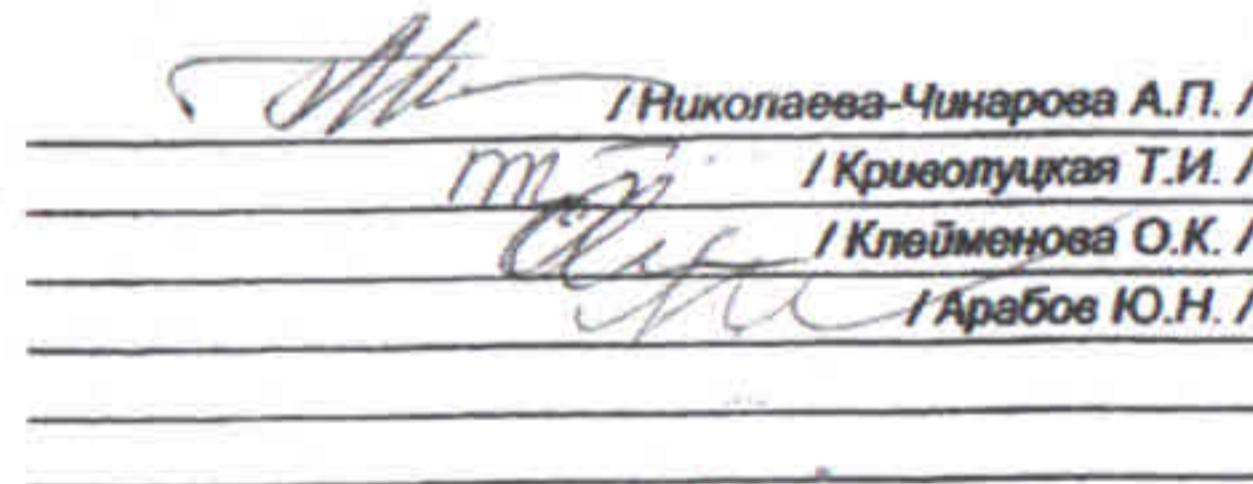 / Николаева-Чинарова А.П. /
/ Криволуцкая Т.И. /
/ Клейменова О.К. /
/ Арабов Ю.Н. /